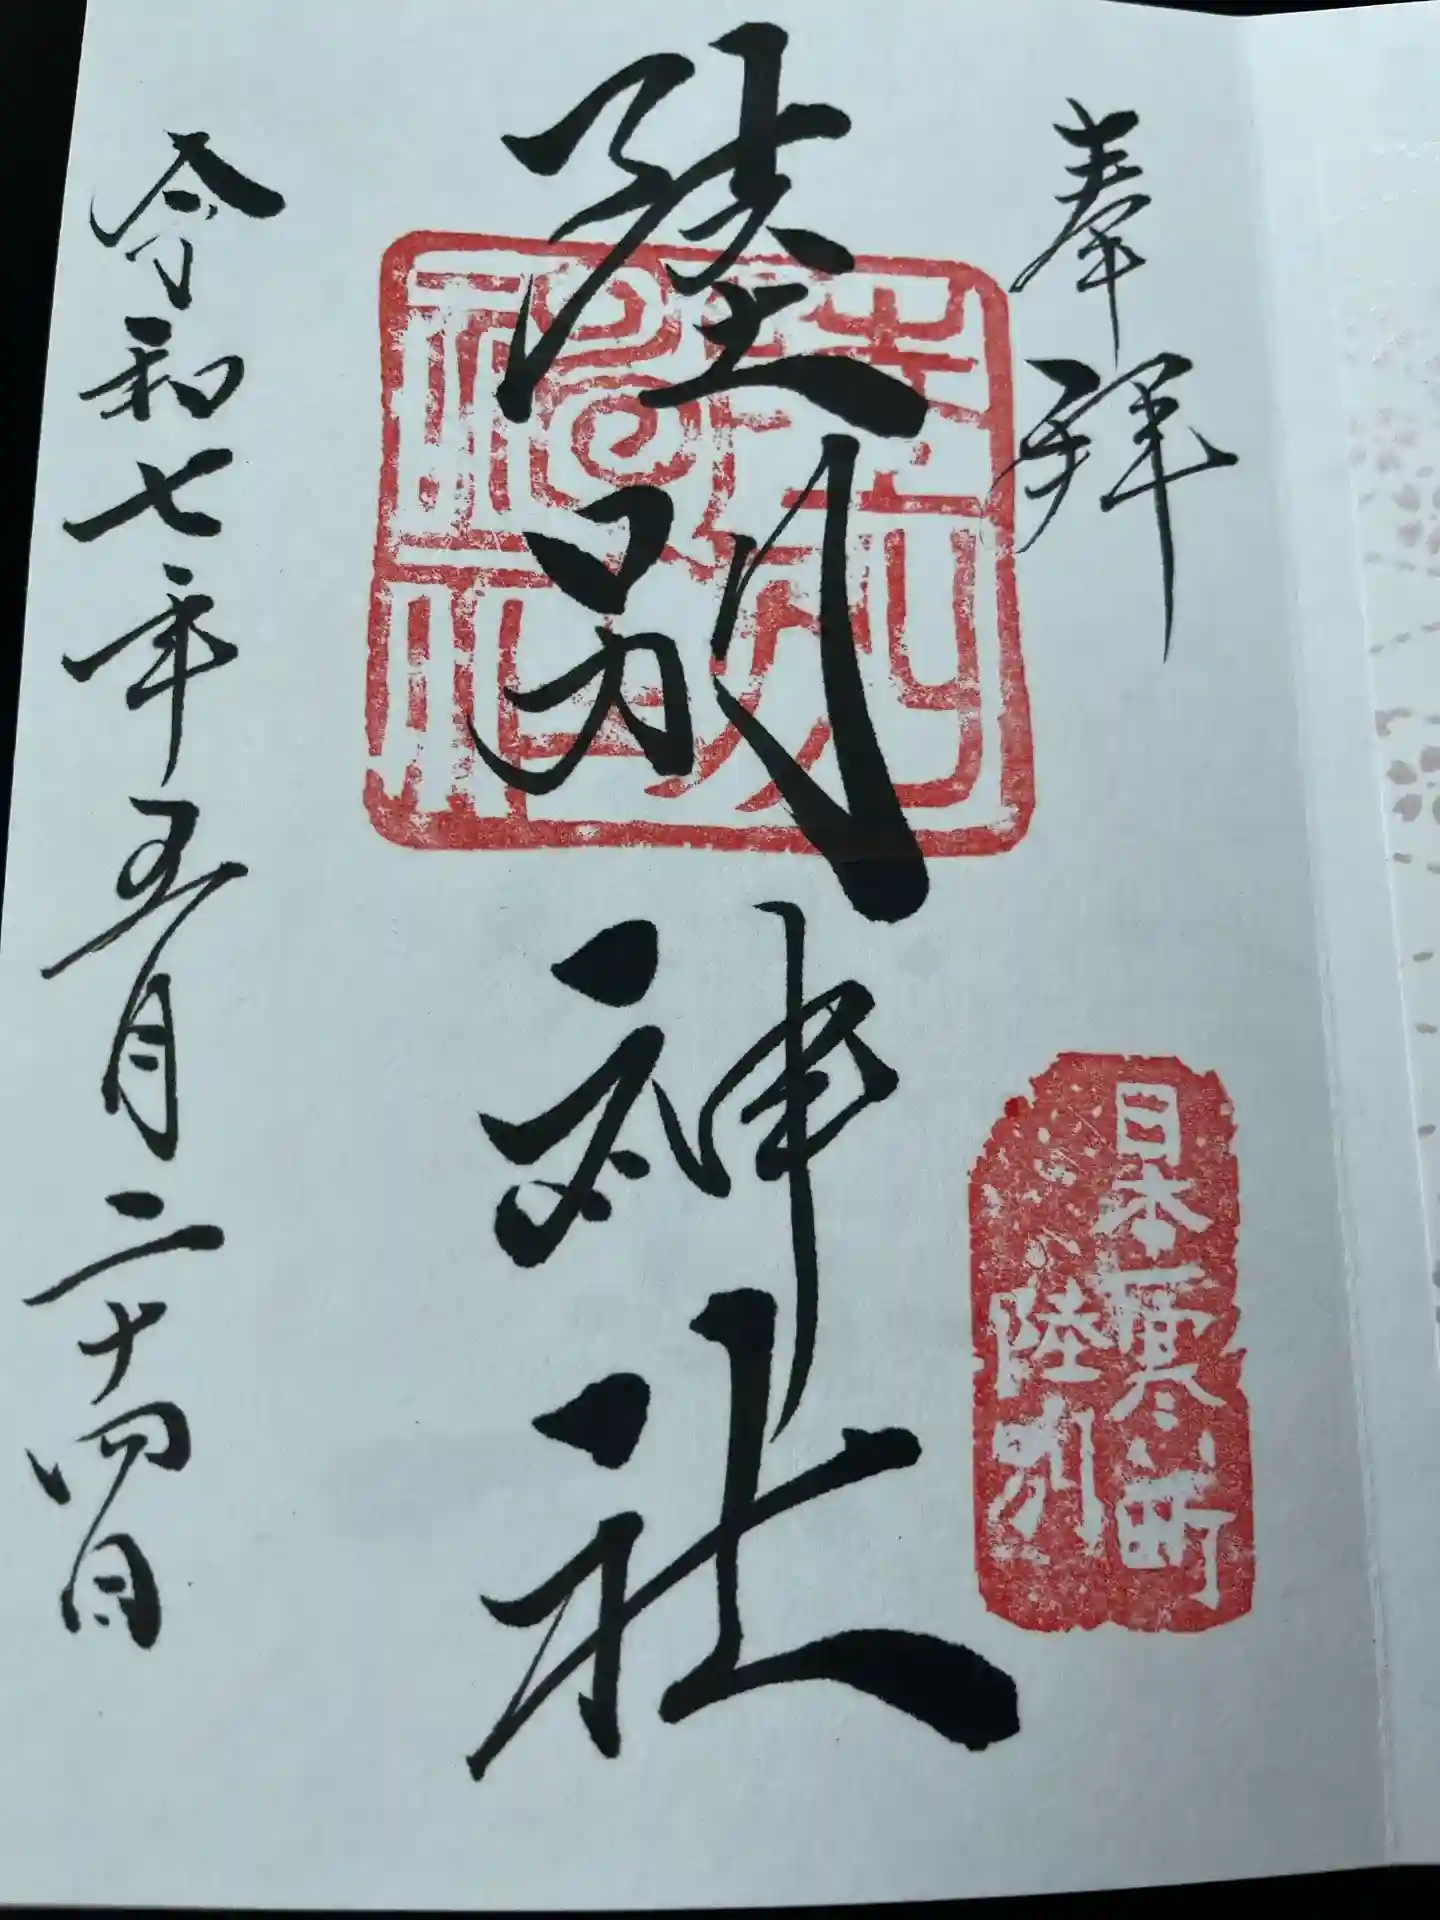 奉拝
日本一寒い町
陸別
陸別神社
令和七年五月二十四日